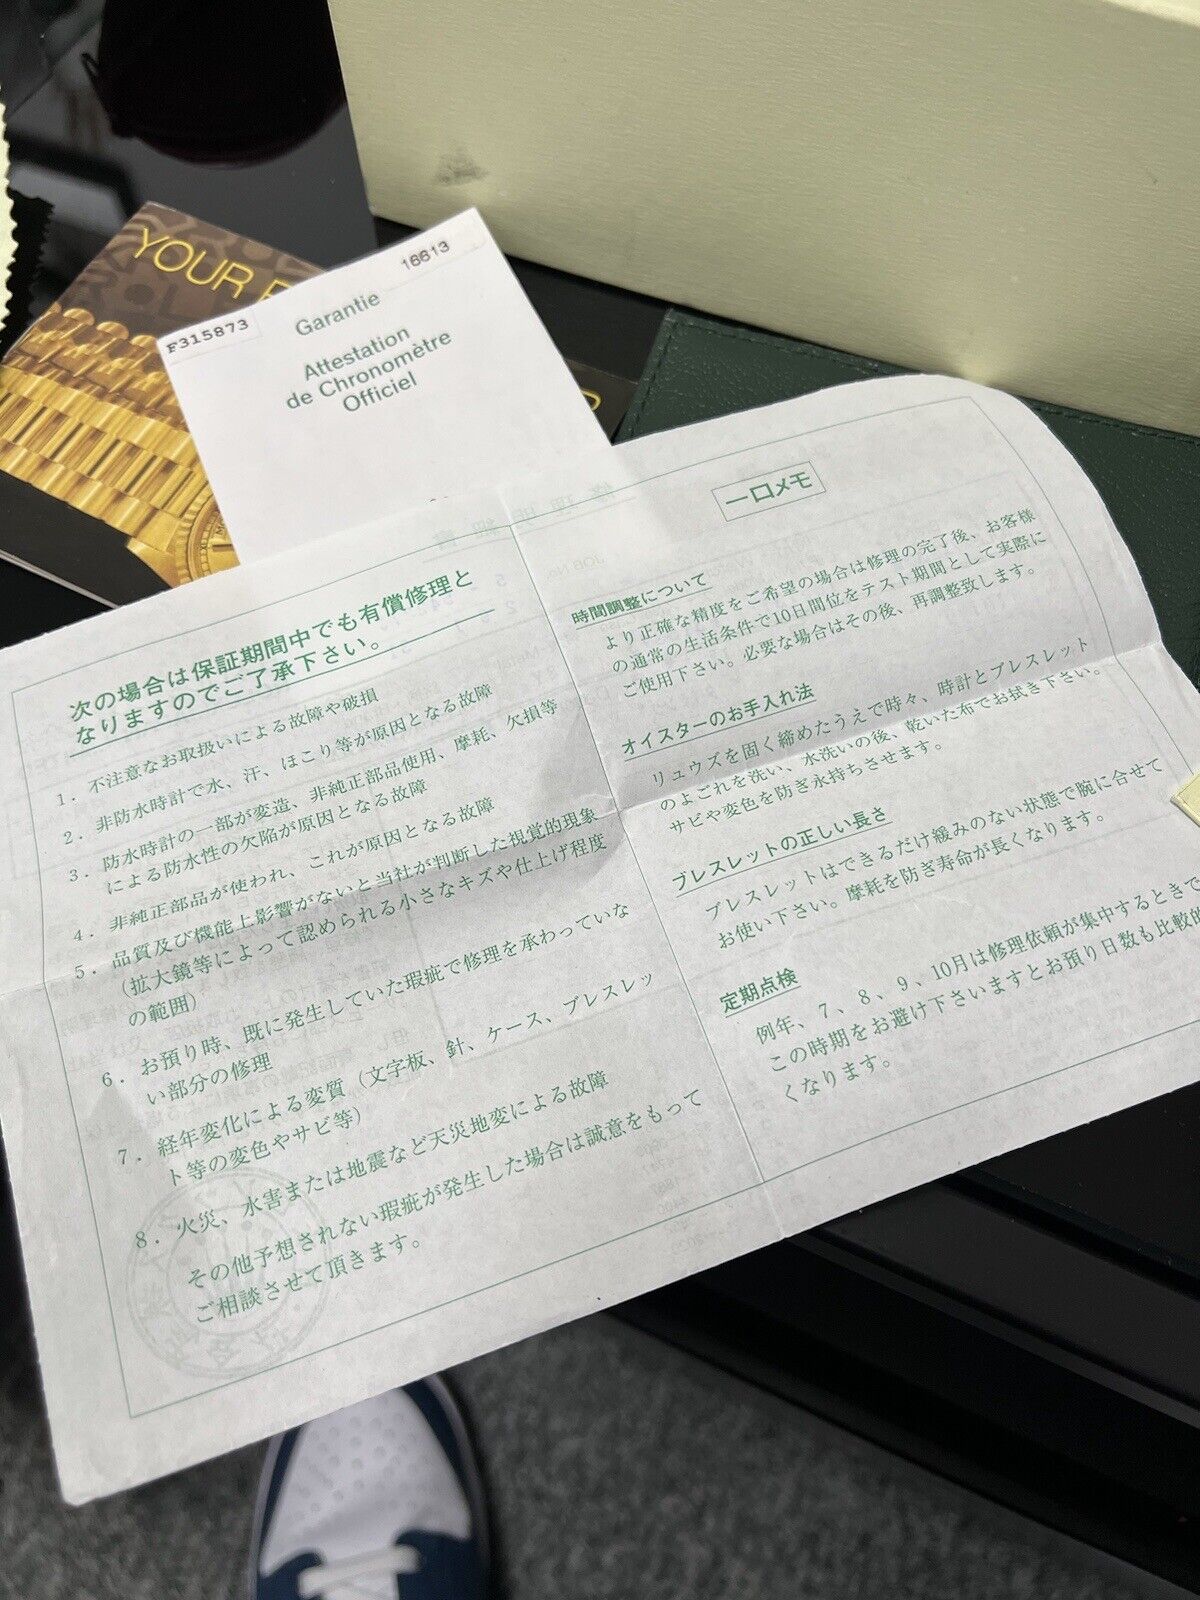 YOUR
16613
F315873
Garantie
Attestation
de Chronomètre
Officiel
次の場合は保証期間中でも有償修理と
なりますのでご了承下さい。
1. 不注意なお取扱いによる故障や破損
2. 非防水時計で水、汗、ほこり等が原因となる故障
3. 防水時計の一部が変造、非純正部品使用、摩耗、欠損等
による防水性の欠陥が原因となる故障
4. 非純正部品が使われ、これが原因となる故障
5. 品質及び機能上影響がないと当社が判断した視覚的現象
(拡大鏡等によって認められる小さなキズや仕上げ程度
の範囲)
6. お預り時、既に発生していた瑕疵で修理を承わっていな
い部分の修理
7. 経年変化による変質(文字板、針、ケース、ブレスレッ
ト等の変色やサビ等)
8. 火災、水害または地震など天災地変による故障
その他予想されない瑕疵が発生した場合は誠意をもって
ご相談させて頂きます。
一口メモ
時間調整について
より正確な精度をご希望の場合は修理の完了後、お客様
の通常の生活条件で10日間位をテスト期間として実際に
ご使用下さい。必要な場合はその後、再調整致します。
オイスターのお手入れ法
リュウズを固く締めたうえで時々、時計とブレスレット
のよごれを洗い、水洗いの後、乾いた布でお拭き下さい。
サビや変色を防ぎ永持ちさせます。
ブレスレットの正しい長さ
ブレスレットはできるだけ緩みのない状態で腕に合せて
お使い下さい。摩耗を防ぎ寿命が長くなります。
定期点検
例年、7、8、9、10月は修理依頼が集中するときで
この時期をお避け下さいますとお預り日数も比較的
くなります。